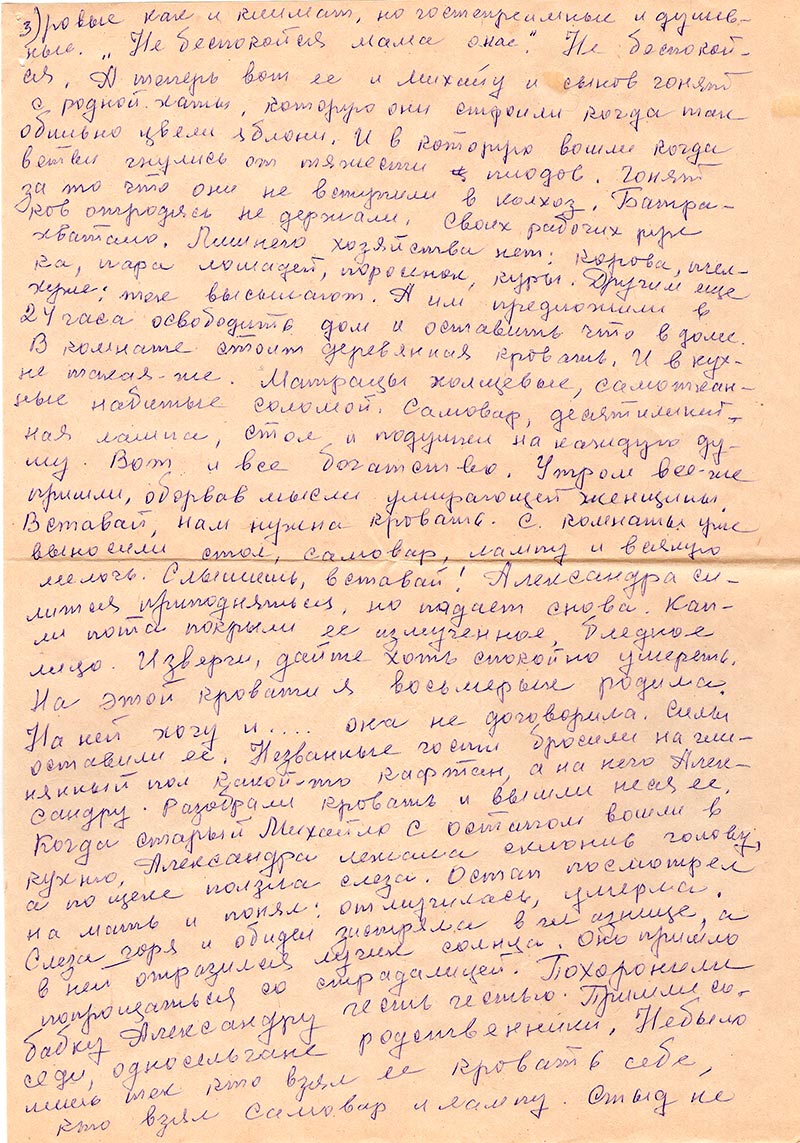 3) ровые как и климат, но гостеприимные и душев-
ные. „Не беспокойся мама онас". Не беспокой-
ся. А теперь вот ее и Михайу и сынов гонят
с родной хаты, которую они строили когда так
обильно цвели яблони. И в которую вошли когда
ветви гнулись от тяжести плодов. Гонят
за то что они не вступили в колхоз. Батра-
ков отродясь не держали. Своих рабочих рук
хватало. Лишнего хозяйства нет: корова, тел-
ка, пара лошадей, поросенок, куры. Другим еще
хуже: тех высылают. А им предложили в
24 часа освободить дом и оставить что в доме.
В комнате стоит деревянная кровать. И в кух-
не такая-же. Матрацы холщевые, самоткан-
ные набитые соломой. Самовар, десятилиней-
ная лампа, стол и подушки на каждую ду-
шу. Вот и все богатство. Утром все-же
пришли, оборвав мысли умирающей женщины.
Вставай, нам нужна кровать. С комнаты уже
выносили стол, самовар, лампу и всякую
мелочь. Слышишь, вставай! Александра си-
лится приподняться, но падает снова. Кап-
ли пота покрыли ее измученное, бледное
лицо. Изверги, дайте хоть спокойно умереть.
На этой кровати я восьмерых родила.
На ней хочу и.... она не договорила. Силы
оставили ее. Незванные гости бросили на гли-
нянный пол какой-то кафтан, а на него Алек-
сандру. Разобрали кровать и вышли неся ее.
Когда старый Михайло с Остапом вошли в
кухню, Александра лежала склонив голову,
а по щеке ползла слеза. Остап посмотрел
на мать и понял: отмучилась, умерла.
Слеза горя и обиды застряла в глазнице, а
в ней отразился лучик солнца. Оно пришло
попрощаться со страдалицей. Похоронили
бабку Александру честь честью. Пришли со-
седи, односельчане родственники. Небыло
лишь тех кто взял ее кровать себе,
кто взял самовар и лампу. Стыд не